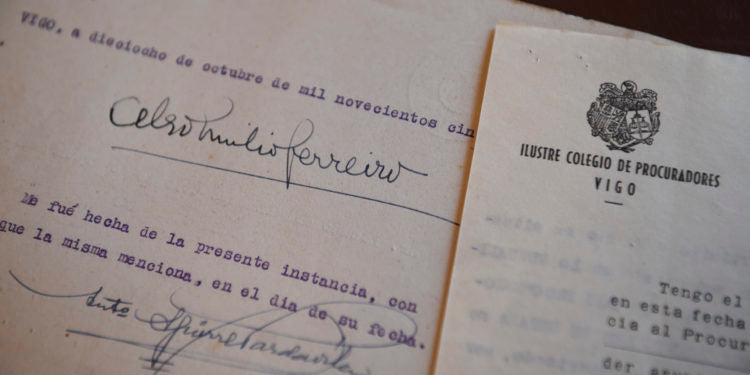 VIGO, a dieciocho de octubre de mil novecientos cin
Celso Emilio Ferreiro
Me fué hecha de la presente instancia, con
que la misma menciona, en el día de su fecha.
ILUSTRE COLEGIO DE PROCURADORES
VIGO
Tengo el
en esta fecha
cia al Procur
der